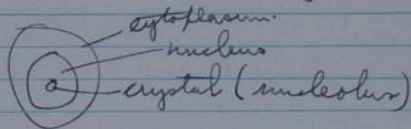 cytoplasm.
nucleus
crystal (nucleolus)